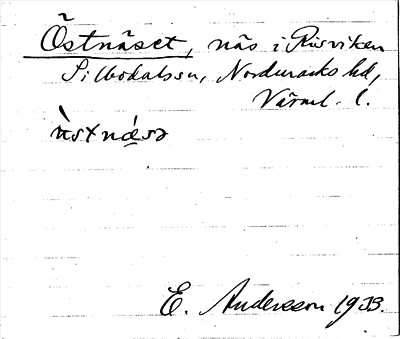 Östnäset, näs i Risviken
Silbodalssn, Nordmarks hd,
Värml. l.
E. Andersson 1933.